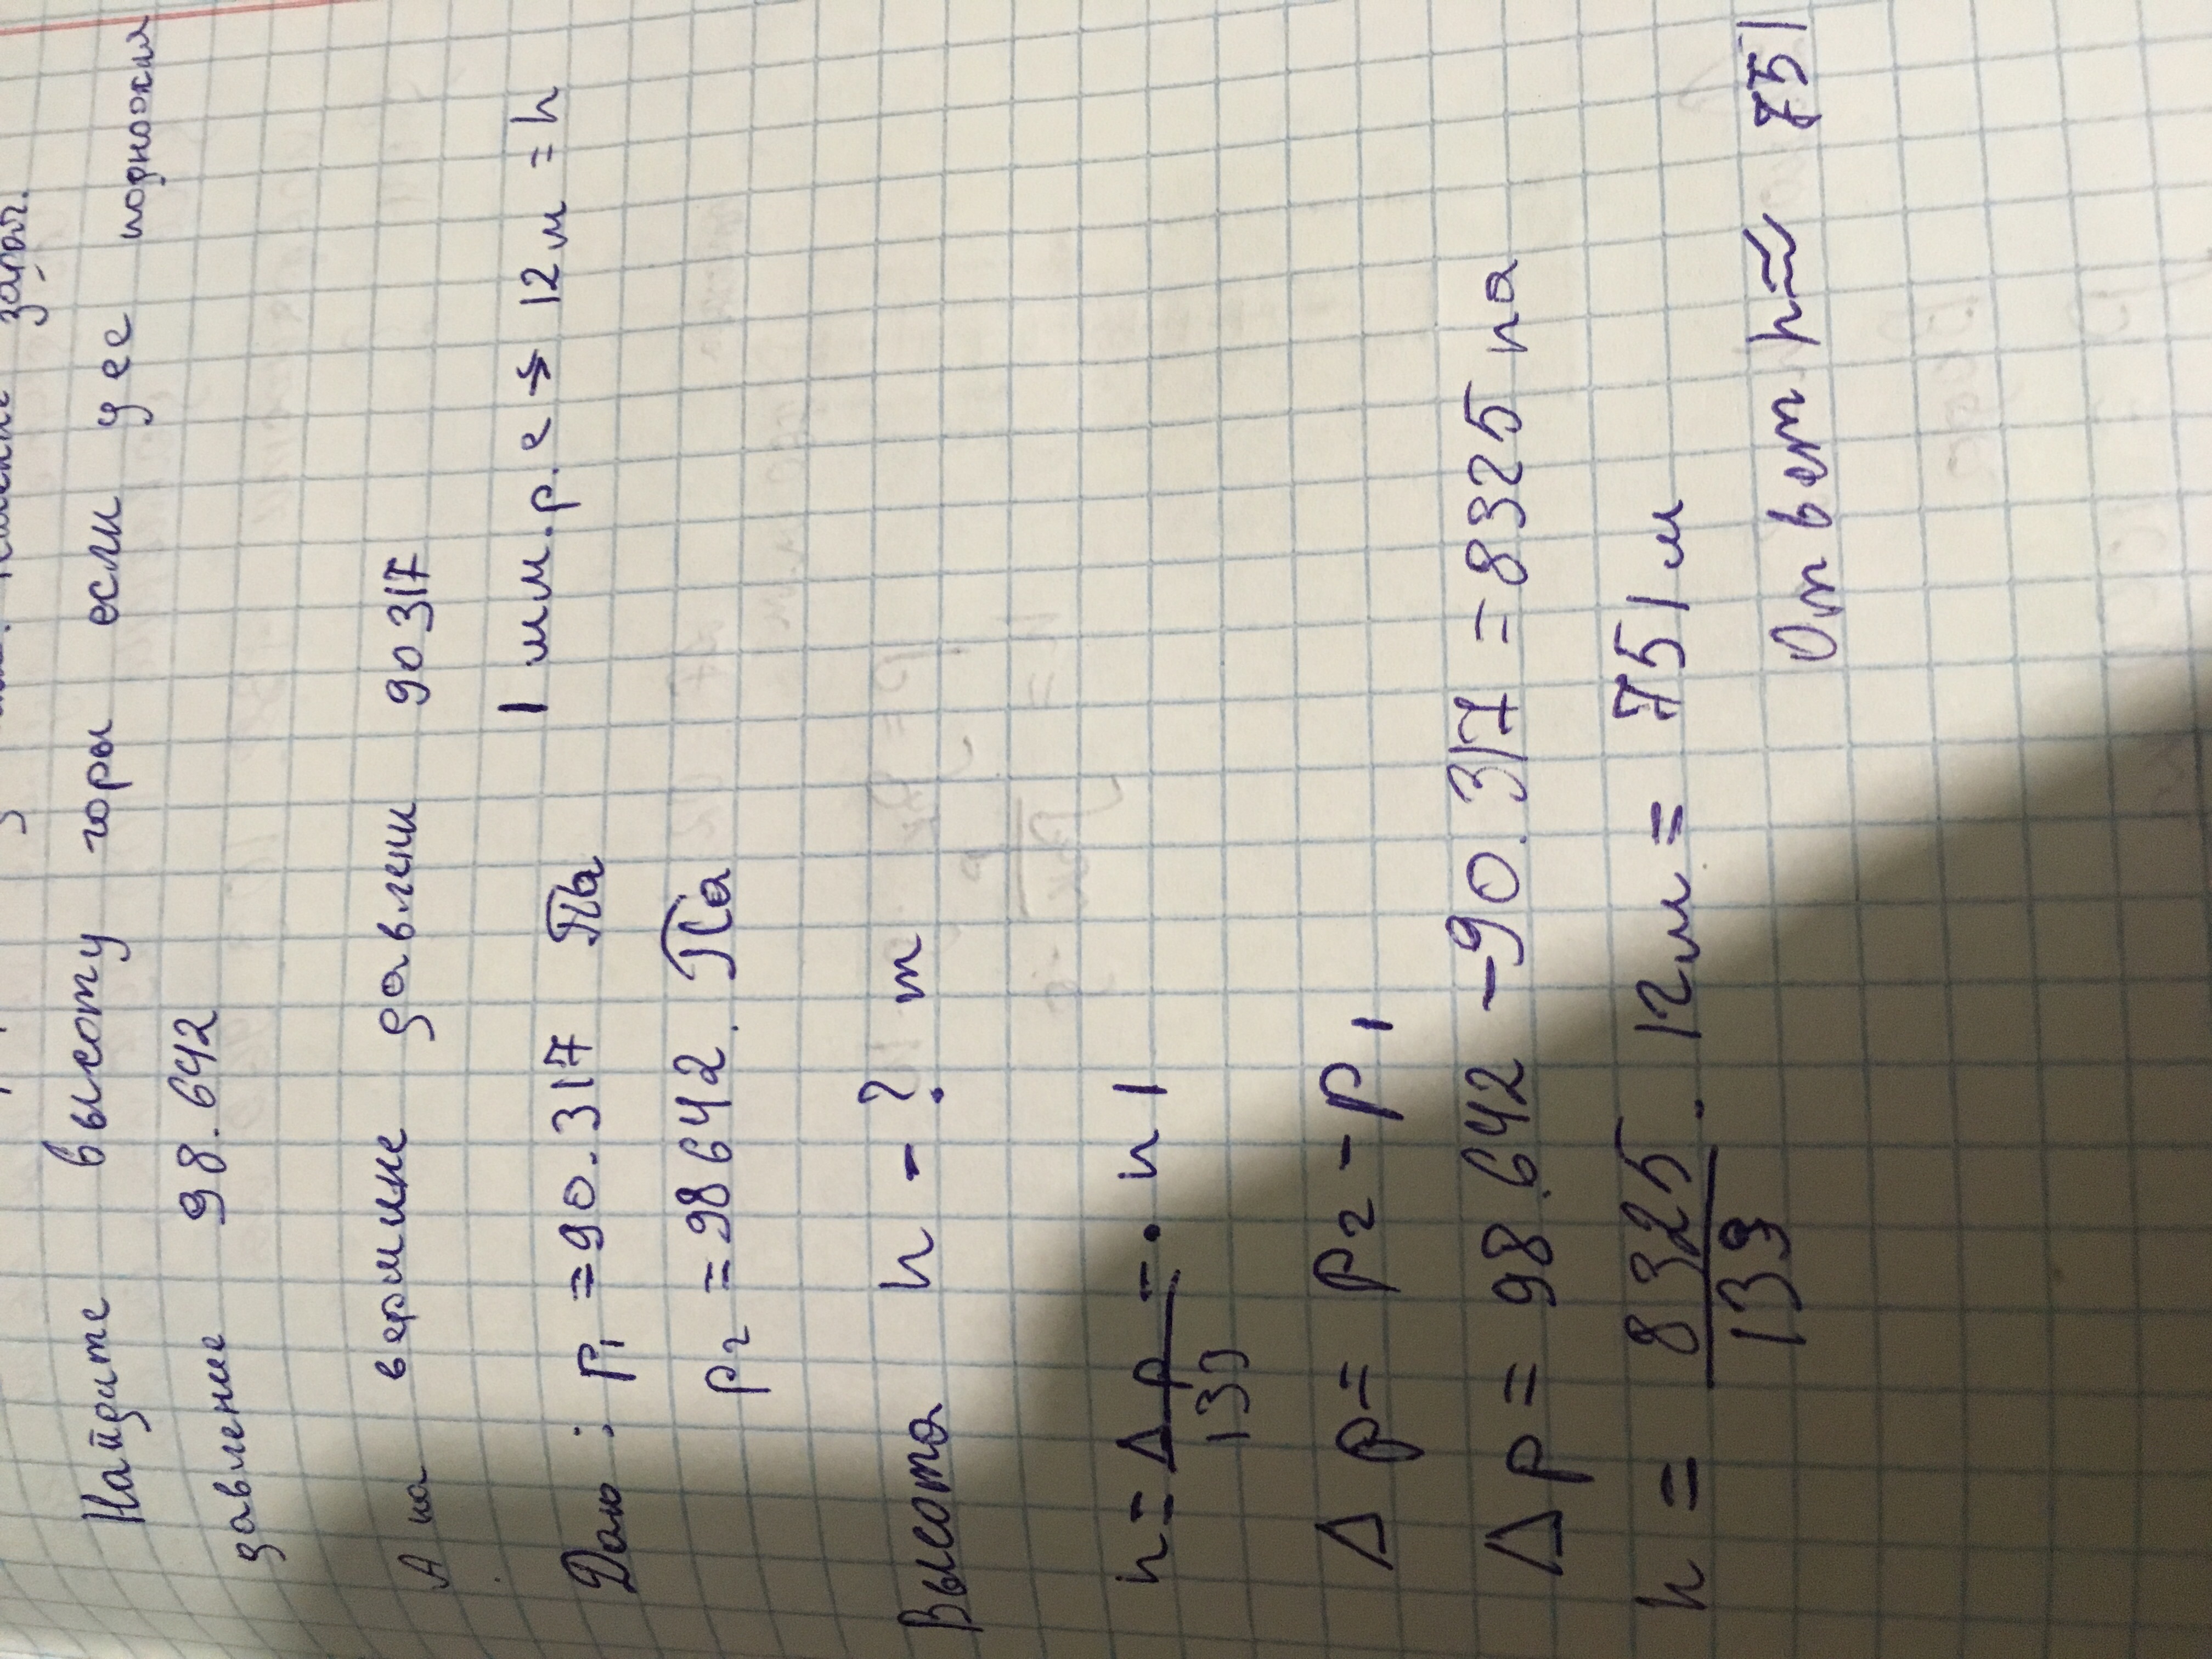 зарат.
Найдите высоту горы если у ее подножия
давление 98.642
А на вершине давлени 90317
Дано : P₁ = 90.317 Па 1 мм.р.е → 12 м = h
P₂ = 98642. Па
Высота h - ? m
h = Δp/133 = · h 1
Δ P = P₂ - P₁
Δ P = 98.642 - 90.317 = 8325 па
h = 8325/133 · 12м = 751 м
Ответ h ≈ 751